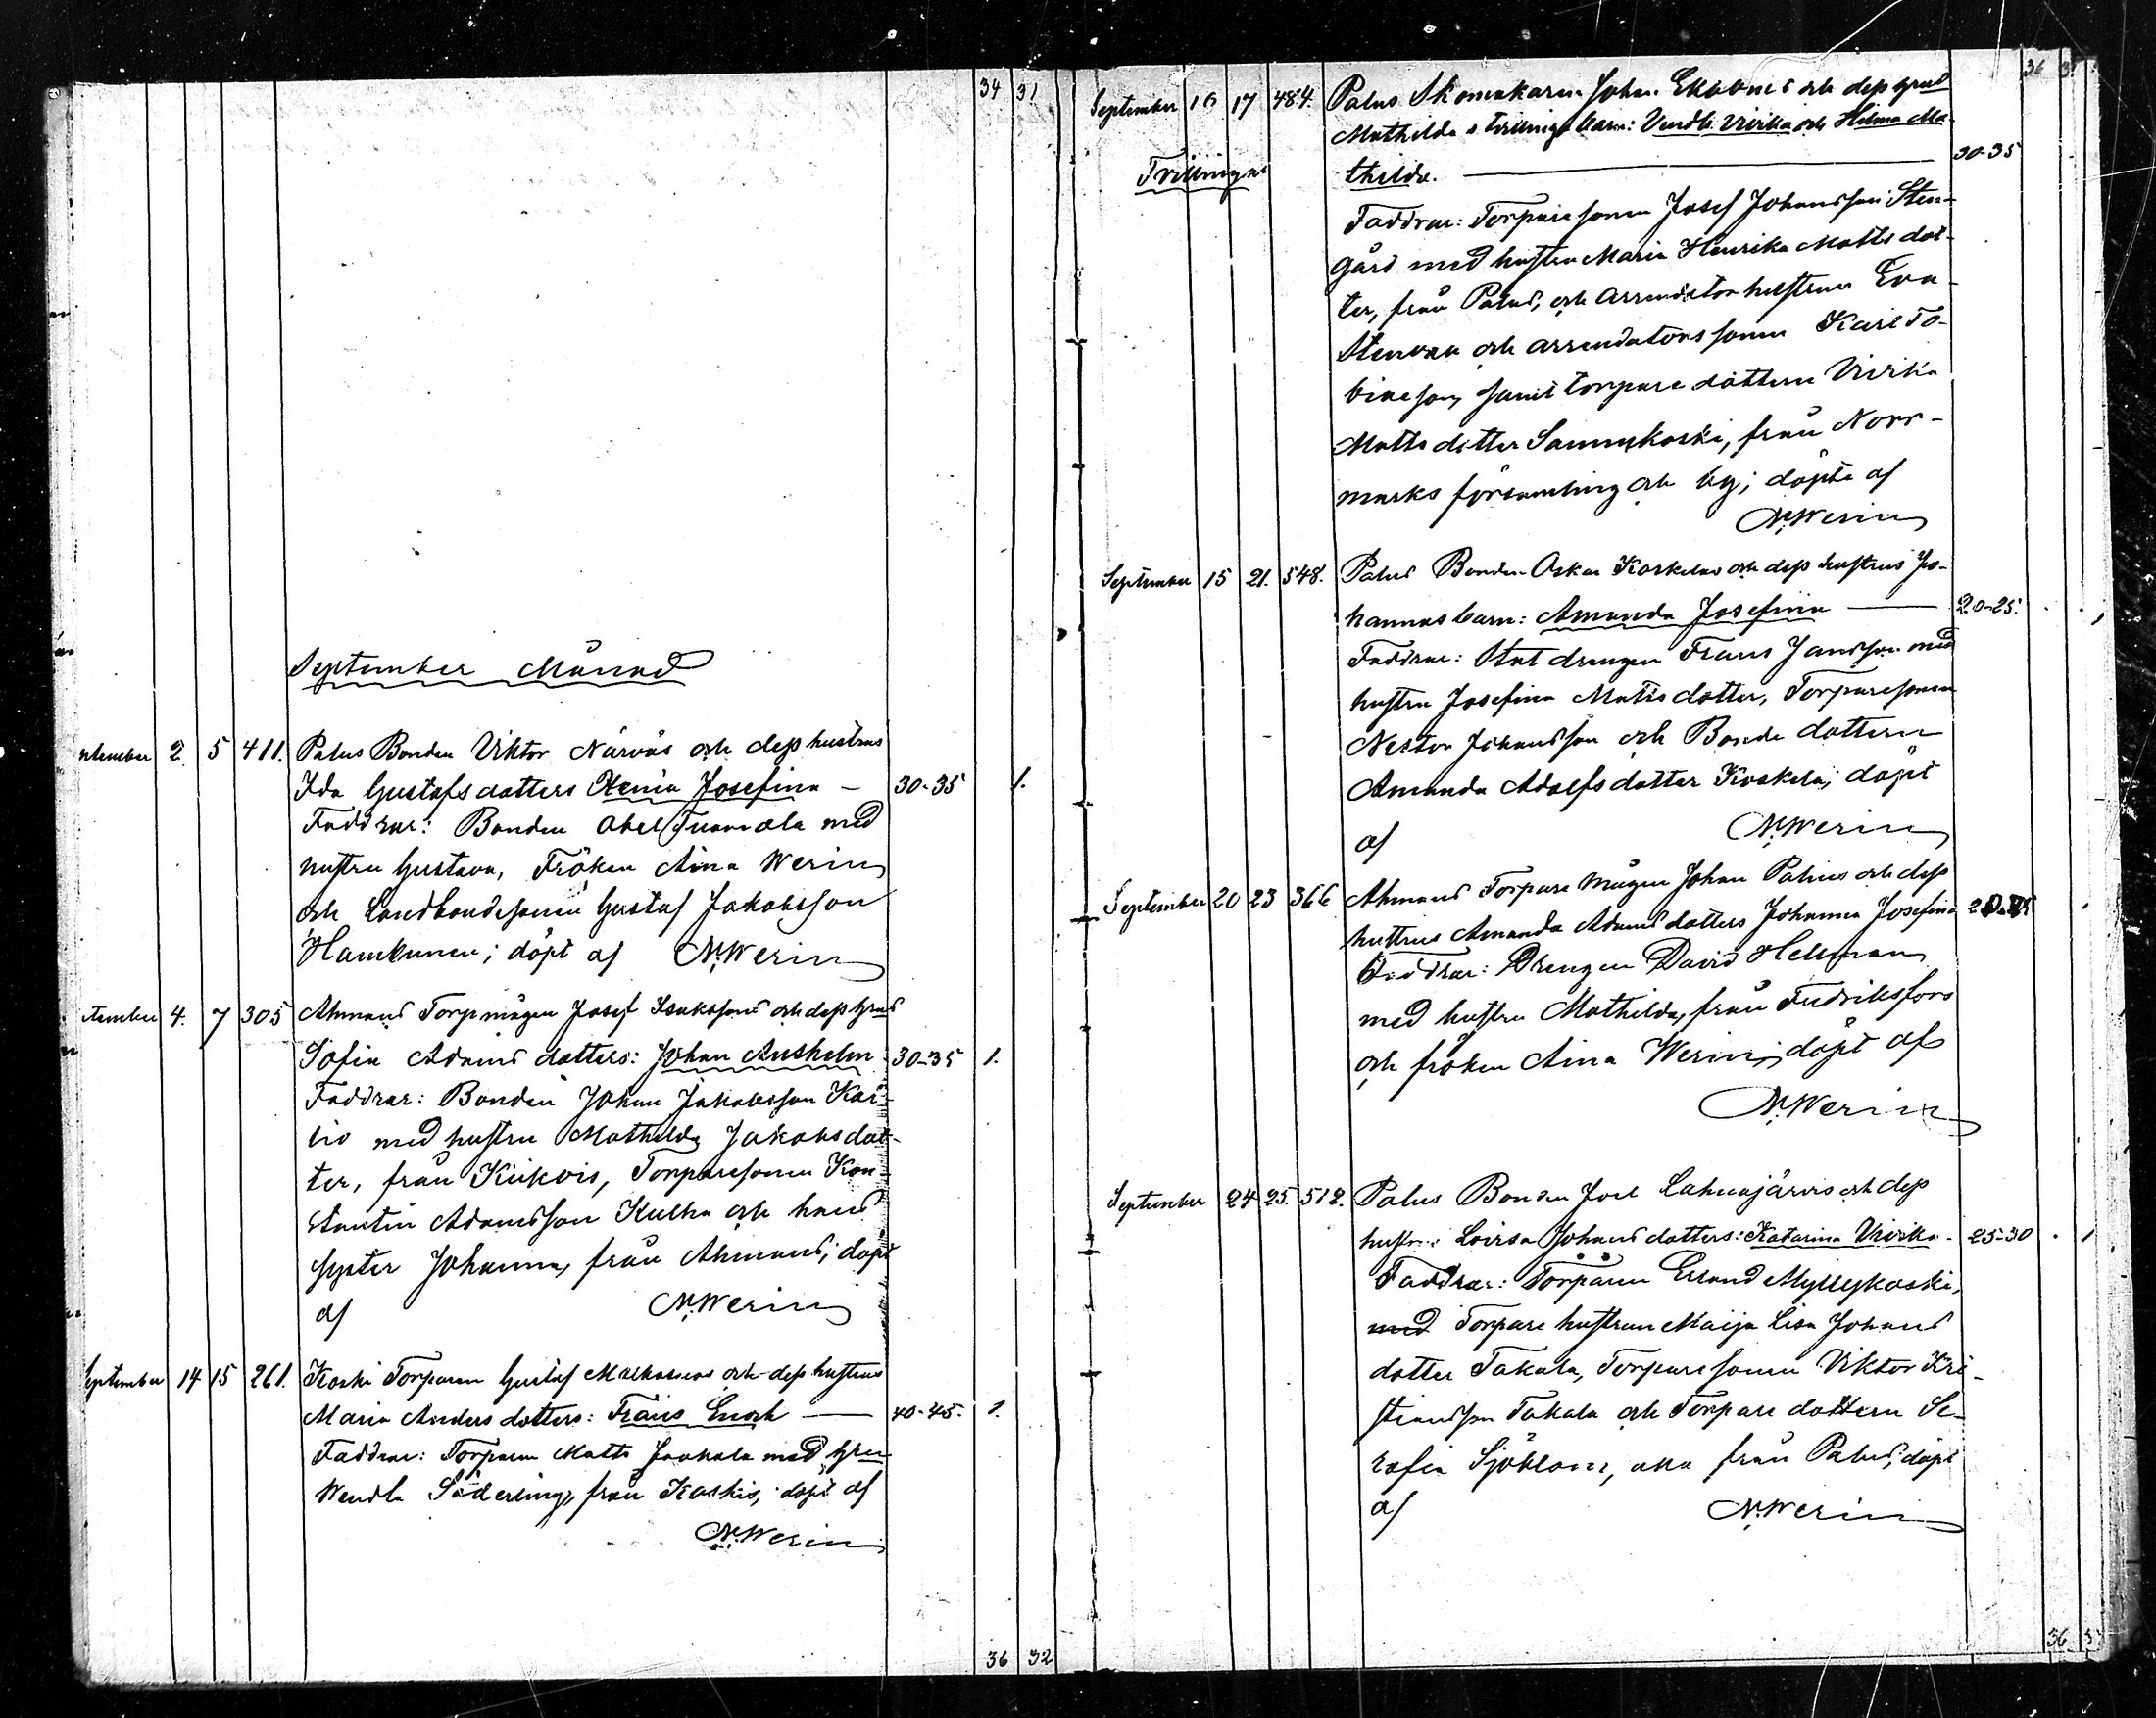 34 31
September Månad
September 2. 5 411. Palus Bonden Viktor Närväs och dess hustrus
Ida Gustafsdotters Xenia Josefina — 30-35 1.
Faddrar: Bonden Abel Tuomola med
hustru Gustava, Fröken Aina Werin
och Landbondesonen Gustaf Jakobsson
; döpt af N. Werin
September 4. 7 305 Ahmaus Torpmågen Josef Isakssons och dess hrus
Sofia Adamsdotters: Johan Anshelm 30-35 1.
Faddrar: Bonden Johan Jakobsson Kai-
vio med hustru Mathilda Jakobsdot-
ter, från Kiikois, Torparesonen Kon-
stantin Adamsson Kulha och hans
syster Johanna, från Ahmaus; döpt
af N. Werin
September 14 15 261. Koski Torparen Gustaf och dess hustrus
Maria Andersdotters: Frans Enok — 40-45. 1.
Faddrar: Torparen Matts Jaakola med hru
Wendla Söderling, från Koskis, döpt af
N. Werin
36 32
36
September 16 17 484. Palus Skomakaren Johan Ekbloms och dess hrus
Mathildas trillingebarn: Vendla Vivika och Hilma Ma-
Trillingar thilda. — 30-35
Faddrar: Torparesonen Josef Johansson Sten-
gård med hustru Maria Henrika Matts dot-
ter, från Palus, och arrendator hustrun Eva
Stenvaa och arrendatorssonen Karl To-
biasson, samt torparedottern Vivika
Mattsdotter Sammukoski, från Norr-
marks församling och by; döpte af
N. Werin
September 15 21. 548. Palus Bonden Oskar Koskelas och dess hustrus Jo-
hannas barn: Amanda Josefina — 20-25.
Faddrar: Statdrengen Frans Jansson med
hustru Josefina Mattsdotter, Torparesonen
Nestor Johansson och Bondedottern
Amanda Adolfsdotter Koskela; döpt
af N. Werin
September 20 23 366 Ahmaus Torparemågen Johan Palins och dess
hustrus Amanda Adamsdotters Johanna Josefina
Faddrar: Drengen David Hellman
med hustru Mathilda, från Fredriksfors
och fröken Aina Werin; döpt af
N. Werin
September 24 25. 512. Palus Bonden Joel Lahnajärvis och dess
hustrus Lovisa Johansdotters: Katarina Vivika - 25-30 1
Faddrar: Torparen Erland Myllykoski,
med Torparehustrun Maija Lisa Johans
dotter Takala, Torparesonen Viktor Kri-
stiansson Takala och Torparedottern Se-
rafia Sjöblom, alla från Palus; döpt
af N. Werin
36